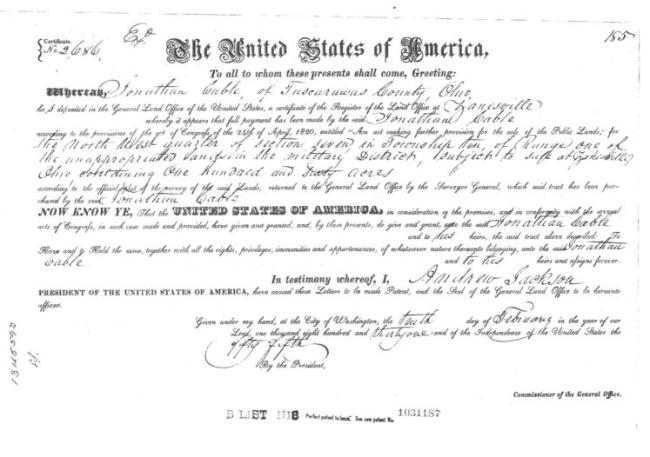 Certificate
No. 2686.
Exd
The United States of America,
185
To all to whom these presents shall come, Greeting:
Whereas, Jonathan Cable, of Tuscarawas County, Ohio,
ha s deposited in the General Land Office of the United States, a certificate of the Register of the Land Office at Zanesville
whereby it appears that full payment has been made by the said Jonathan Cable
according to the provisions of the act of Congress of the 24th of April, 1820, entitled "An act making further provision for the sale of the Public Lands," for
the North West quarter of section seven in Township ten, of Range one of
the unappropriated lands in the military District, subject to sale at Zanesville,
Ohio containing One hundred and sixty acres
according to the official plat of the survey of the said Lands, returned to the General Land Office by the Surveyor General, which said tract has been pur-
chased by the said Jonathan Cable
NOW KNOW YE, That the UNITED STATES OF AMERICA, in consideration of the premises, and in conformity with the several
acts of Congress, in such case made and provided, have given and granted, and, by these presents, do give and grant, unto the said Jonathan Cable
and to his heirs, the said tract above described: To
Have and to Hold the same, together with all the rights, privileges, immunities and appurtenances, of whatsoever nature thereunto belonging, unto the said Jonathan
Cable and to his heirs and assigns forever.
In testimony whereof, I, Andrew Jackson
PRESIDENT OF THE UNITED STATES OF AMERICA, have caused these Letters to be made Patent, and the Seal of the General Land Office to be hereunto
affixed.
Given under my hand, at the City of Washington, the tenth day of February in the year of our
Lord, one thousand eight hundred and thirty one and of the Independence of the United States the
fifty fifth
By the President,
Commissioner of the General Office.
B LIST 1118 Perfect patent to issue. See new patent No. 1031187